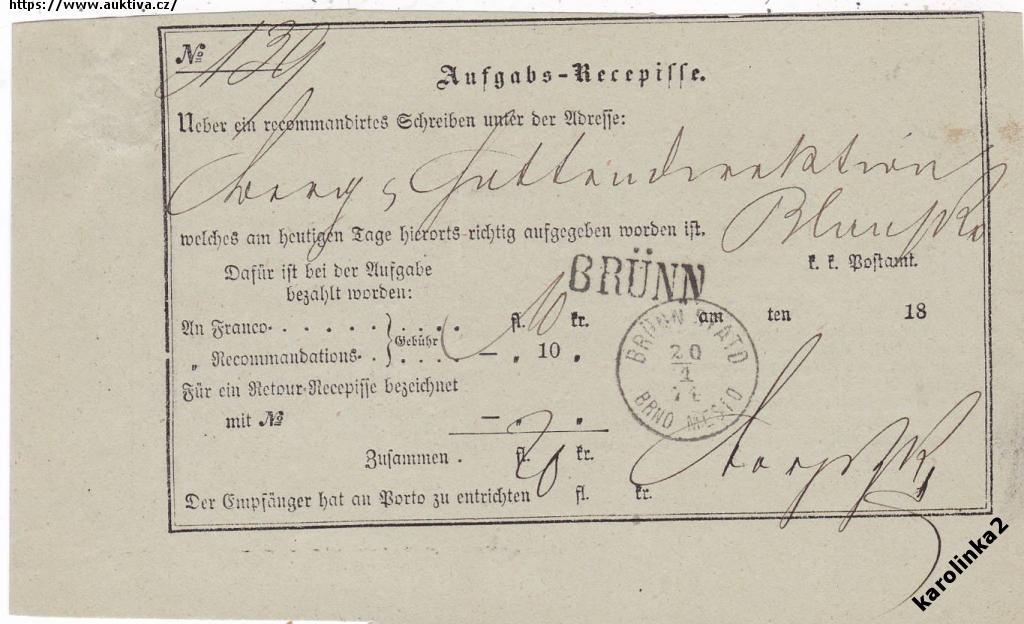 https://www.auktiva.cz/
№ 139
Aufgabs-Recepisse.
Ueber ein recommandirtes Schreiben unter der Adresse:
Hüttendirektion
Blansko
welches am heutigen Tage hierorts richtig aufgegeben worden ist.
Dafür ist bei der Aufgabe
bezahlt worden:
BRÜNN
k. k. Postamt.
An Franco. . . . . . . fl. 10 kr.
„ Recommandations. . . . . — „ 10 „
Gebühr
am ten 18
Für ein Retour-Recepisse bezeichnet
mit № — „ „
BRÜNN STADT
20
1
BRNO MĚSTO
Zusammen . fl. 20 kr.
Der Empfänger hat an Porto zu entrichten fl. kr.
karolinka2